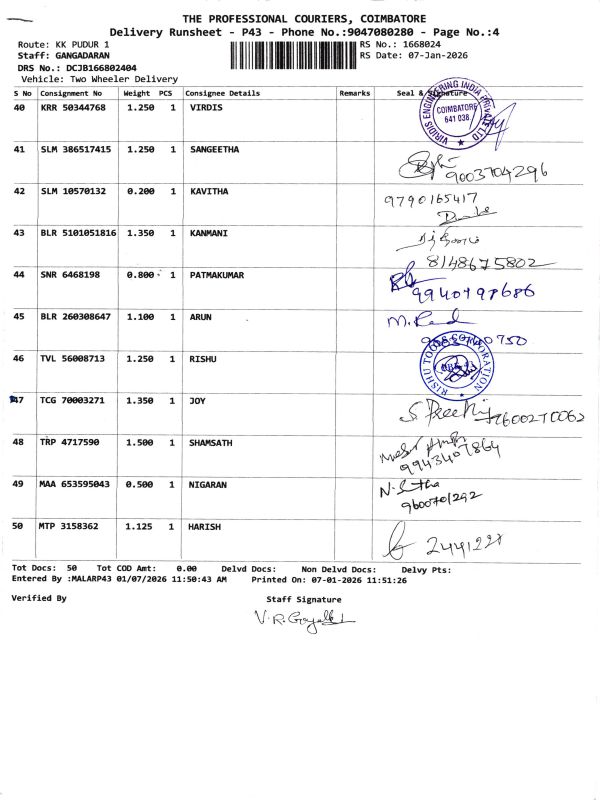 THE PROFESSIONAL COURIERS, COIMBATORE
Delivery Runsheet - P43 - Phone No.:9047080280 - Page No.:4
Route: KK PUDUR 1 RS No.: 1668024
Staff: GANGADARAN RS Date: 07-Jan-2026
DRS No.: DCJB166802404
Vehicle: Two Wheeler Delivery
S No Consignment No Weight PCS Consignee Details Remarks Seal & Signature
40 KRR 50344768 1.250 1 VIRDIS
VIRIDIS ENGINEERING INDIA PRIVATE LTD
COIMBATORE
641 038
41 SLM 386517415 1.250 1 SANGEETHA
9003704296
42 SLM 10570132 0.200 1 KAVITHA
9790165417
43 BLR 5101051816 1.350 1 KANMANI
8148675802
44 SNR 6468198 0.800 1 PATMAKUMAR
9940798686
45 BLR 260308647 1.100 1 ARUN
46 TVL 56008713 1.250 1 RISHU
RISHU TOOLS CORPORATION
47 TCG 70003271 1.350 1 JOY
7600270062
48 TRP 4717590 1.500 1 SHAMSATH
9943407864
49 MAA 653595043 0.500 1 NIGARAN
9600701292
50 MTP 3158362 1.125 1 HARISH
2441227
Tot Docs: 50 Tot COD Amt: 0.00 Delvd Docs: Non Delvd Docs: Delvy Pts:
Entered By :MALARP43 01/07/2026 11:50:43 AM Printed On: 07-01-2026 11:51:26
Verified By Staff Signature